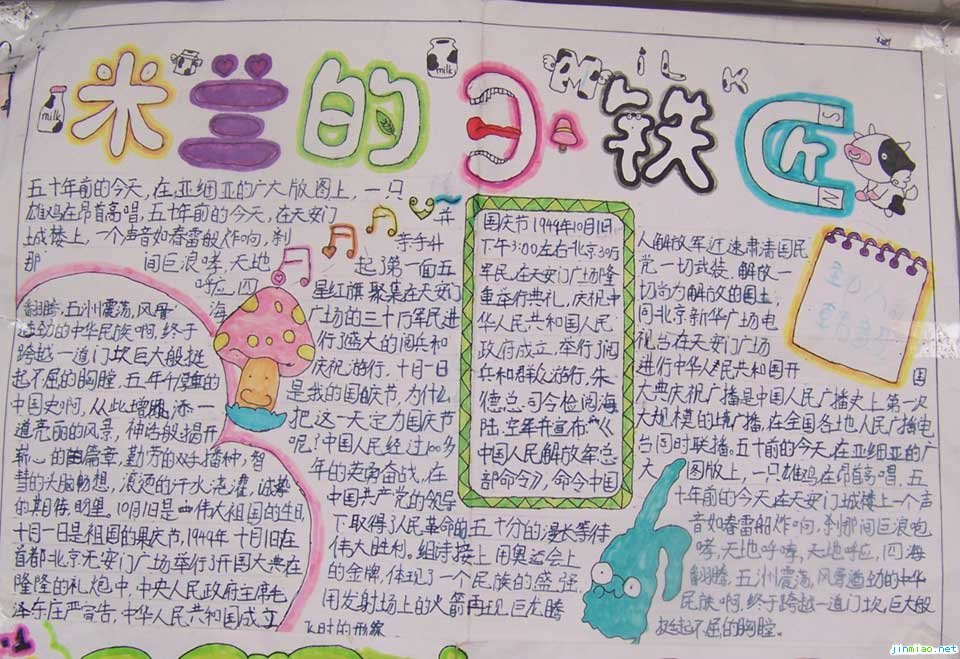 米兰的
MiLK
milk
milk
N
五十年前的今天，在亚细亚的广大版图上，一只
雄鸡在昂首高唱，五十年前的今天，在天安门
城楼上，一个声音如春雷般炸响，刹
那 间巨浪哮，天地
呼应，四
海
翻腾，五洲震荡，风
动的中华民族啊，终于
跨越一道门坎巨大般挺
起不屈的胸膛，五年
中国史啊，从此增添一
道亮丽的风景，神话般揭开
崭心的篇章，勤劳的双手播种，智
慧的大脑畅想，滚烫的汗水浇灌，诚挚
的期待，明里。10月1日是伟大祖国的生日，
十月一日是祖国的果庆节，1949年十月1日在
首都北京天安门广场举行了开国大典在
隆隆的礼炮中，中央人民政府主席毛
泽东庄严宣告，中华人民共和国成立
并
起了第一面五
星红旗聚集在天安门
广场的三十万军民进
行了盛大的阅兵和
庆祝游行，十月一日
是我的国庆节，为什么
把这一天定为国庆节
呢？中国人民经过100多
年的英勇奋战，在
中国共产党的领导
下取得了人民革命的
伟大胜利。
五十分的漫长等待
上用奥运会上
的金牌，体现了一个民族的盛强
用发射场上的火箭再现巨龙腾
飞时的形象
国庆节1949年10月1日
下午3:00左右北京30万
军民，在天安门广场隆
重举行典礼，庆祝中
华人民共和国人民
政府成立，举行了阅
兵和群众游行，朱
德总司令检阅海
陆、空军并宣布《
中国人民解放军总
部命令》，命令中国
人解放军迅速肃清国民
党一切武装，解放一
切尚力解放的国土，
同北京新华广场电
视台在天安门广场
进行中华人民共和国开 国
大典庆祝广播是中国人民广播史上第一次
大规模的境广播，在全国各地人民广播电
台同时联播。五十前的今天，在亚细亚的广
大 图版上，一只雄鸡在昂首高唱，五
十年前的今天在天安门城楼上一个声
音如春雷般炸响，刹那间巨浪咆
哮，天地呼哮，天地呼应，四海
翻腾，五洲震荡，风 动的中华
民族啊，终于跨越一道门坎，巨大般
挺起不屈的胸膛。
jinmiao.net